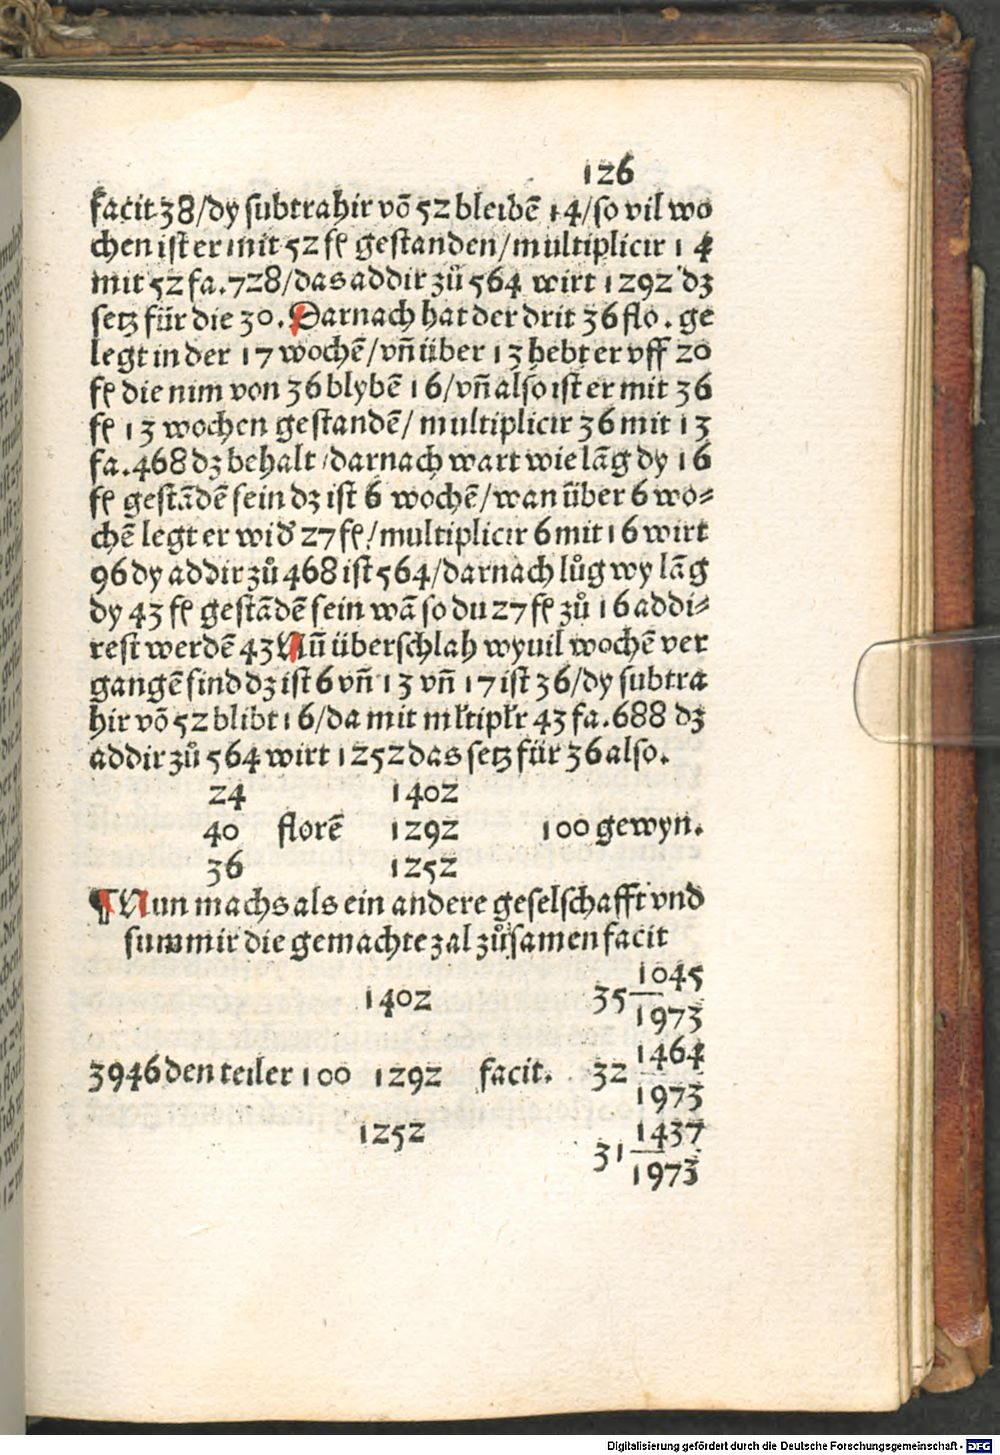 126
facit 38/dy subtrahir võ 52 bleibẽ 14/so vil wo
chen ist er mit 52 fl gestanden/multiplicir 14
mit 52 fa.728/das addir zů 564 wirt 1292 dz
setz für die 30. Darnach hat der drit 36 flo. ge
legt in der 17 wochẽ/vñ über 13 hebt er vff 20
fl die nim von 36 blybẽ 16/vñ also ist er mit 36
fl 13 wochen gestandẽ/ multiplicir 36 mit 13
fa.468 dz behalt/darnach wart wie lãg dy 16
fl gestãdẽ sein dz ist 6 wochẽ/wan über 6 wo⸗
chẽ legt er wid̃ 27 fl/multiplicir 6 mit 16 wirt
96 dy addir zů 468 ist 564/darnach lůg wy lãg
dy 43 fl gestãdẽ sein wã so du 27 fl zů 16 addi⸗
rest werdẽ 43 Nũ überschlah wyuil wochẽ ver
gangẽ sind dz ist 6 vñ 13 vñ 17 ist 36/dy subtra
hir võ 52 blibt 16/da mit mĩtipĩr 43 fa.688 dz
addir zů 564 wirt 1252 das setz für 36 also.
24 1402
40 florẽ 1292 100 gewyn.
36 1252
¶ Nun machs als ein andere geselschafft vnd
summir die gemachte zal zůsamen facit
1402 35 1045/1973
3946 den teiler 100 1292 facit. 32 1464/1973
1252 31 1437/1973
Digitalisierung gefördert durch die Deutsche Forschungsgemeinschaft - DFG